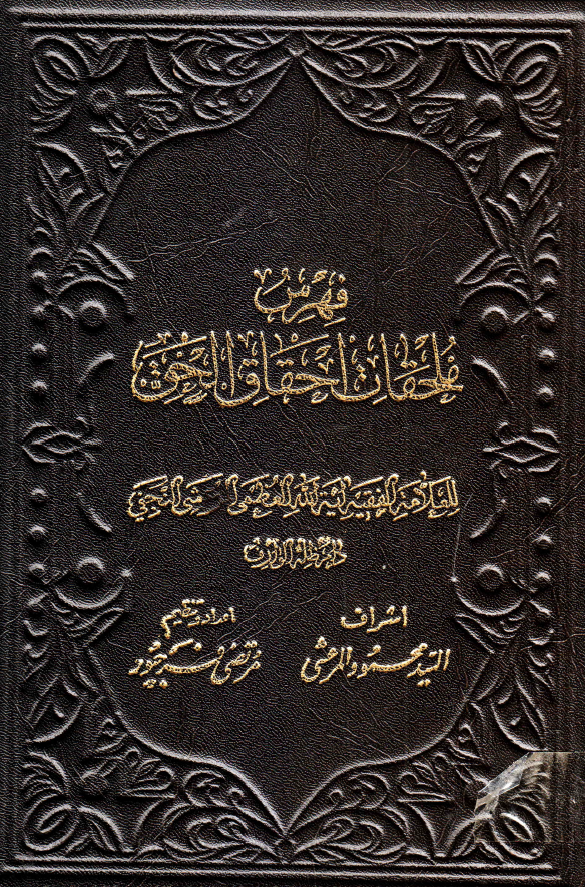 فهرس
ملحقات احقاق الحق
للعلامة الفقيه آية الله العظمى المرعشى النجفي
دام ظله الوارف
اشراف
السيد محمود المرعشي
اعداد و تنظيم
مرتضى